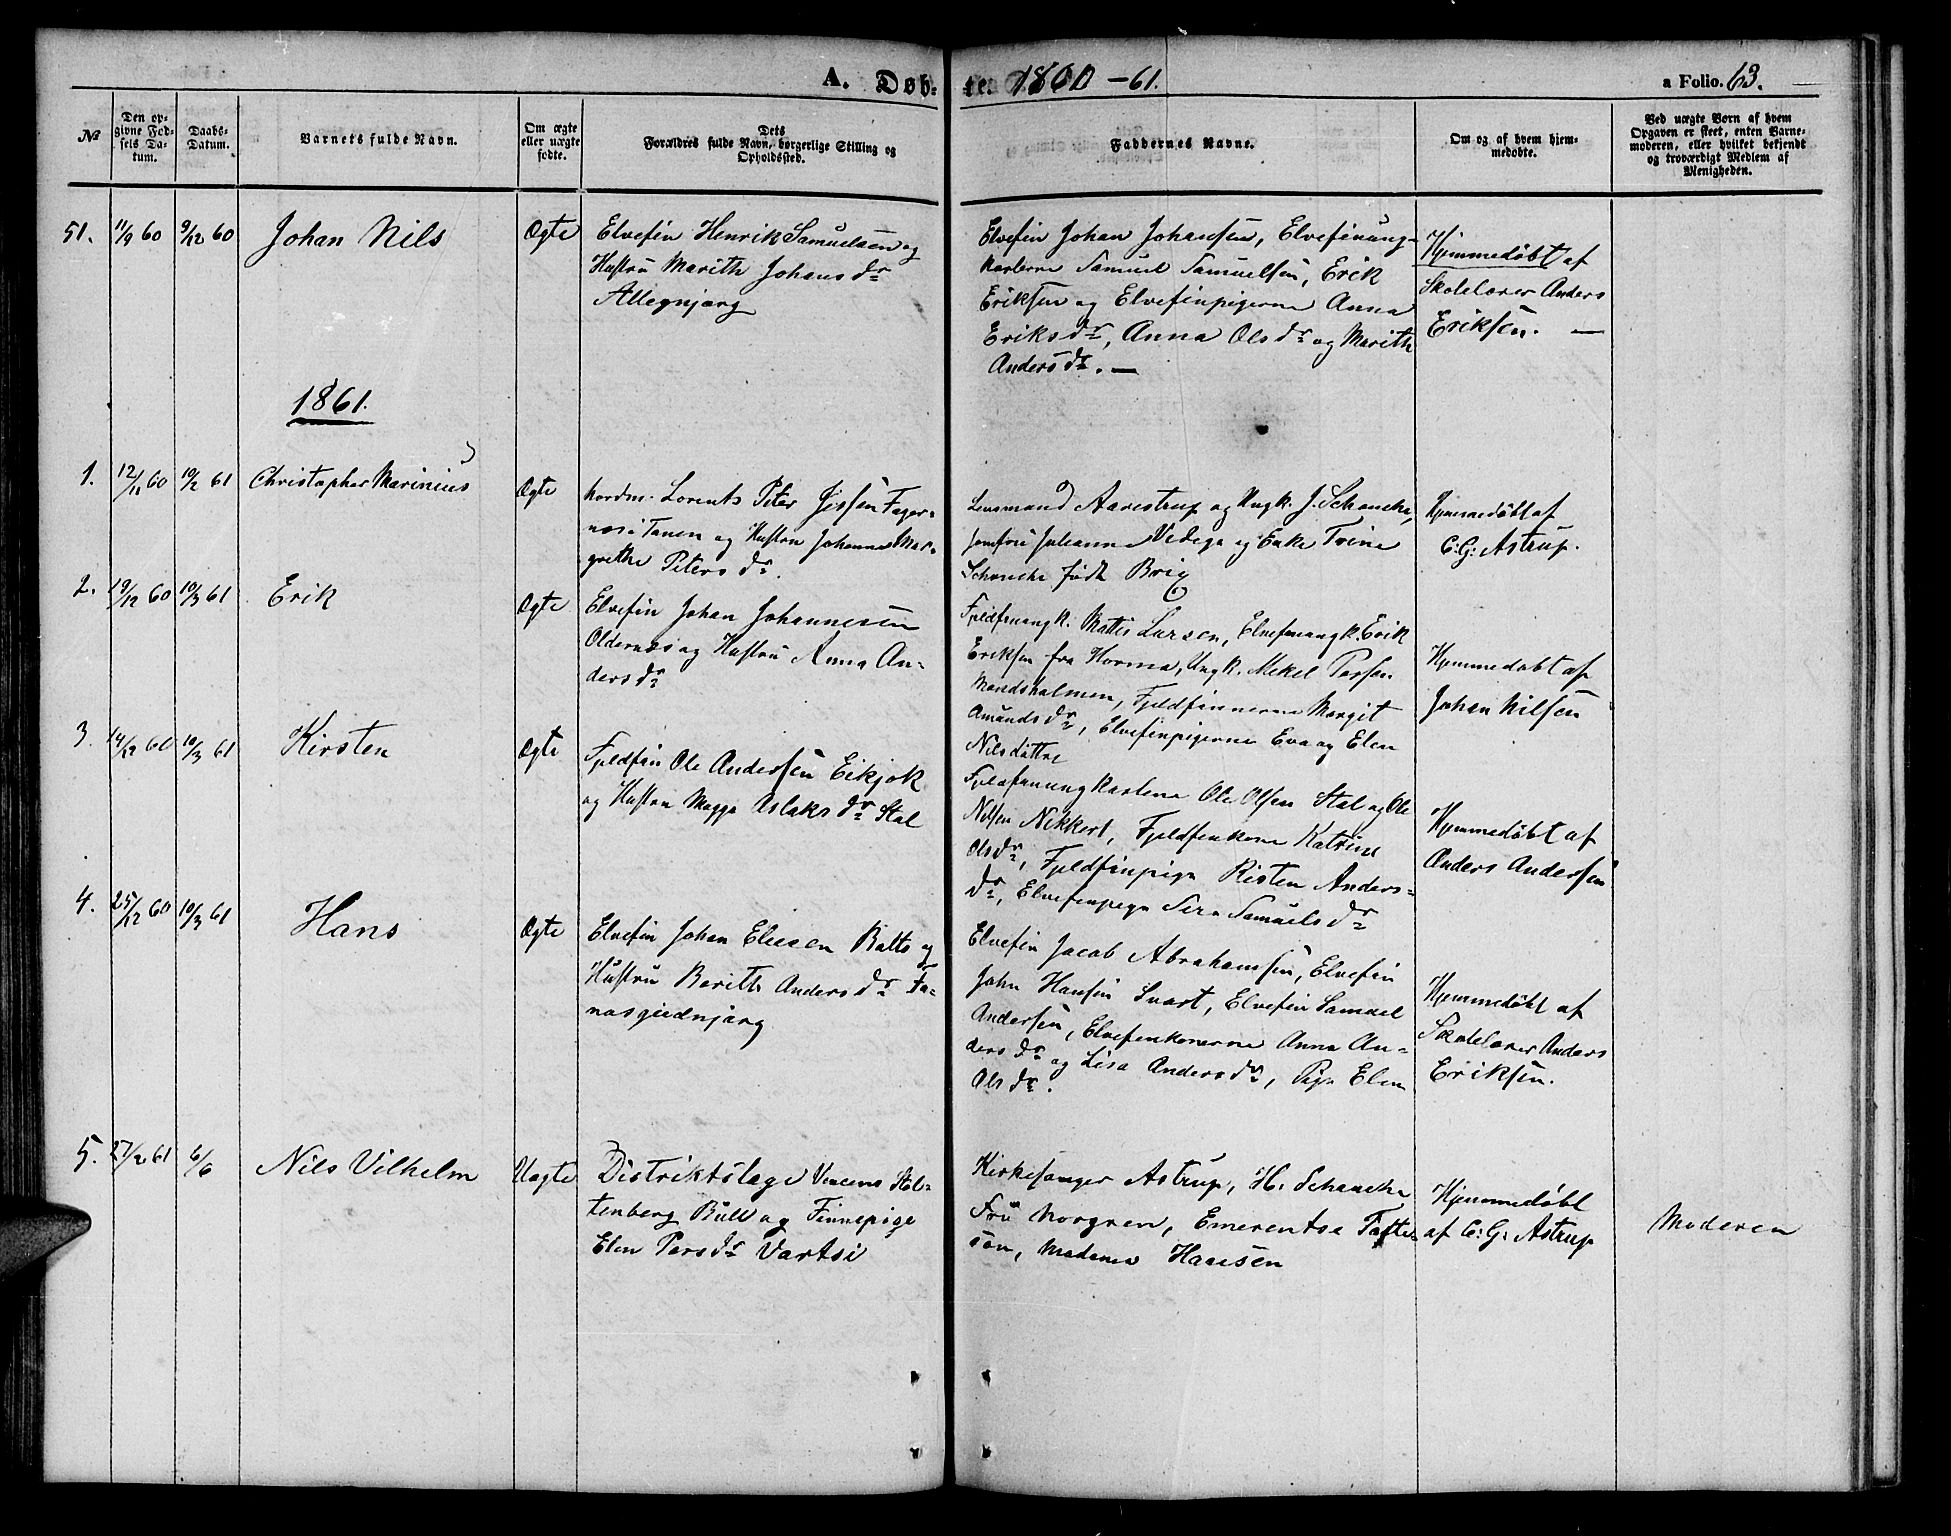 A. Døb- te. 1860-61. a Folio. 63.
№
Den op-
givne Fød-
sels Da-
tum.
Daabs-
Datum.
Barnets fulde Navn.
Om ægte
eller uægte
fødte.
Dets
Forældres fulde Navn, borgerlige Stilling og
Opholdssted.
Faddernes Navne.
Om og af hvem hjem-
medøbte.
Ved uægte Børn af hvem
Opgaven er skeet, enten Barne-
moderen, eller hvilket bekjendt
og troværdigt Medlem af
Menigheden.
51. 11/9 60 9/12 60 Johan Nils Ægte
Elvefin Henrik Samuelsen og
Hustru Marith Johansdr
Allegnjarg
Elvefin Johan Johansen, Elvefinung-
karlerne Samuel Samuelsen, Erik
Eriksen og Elvefinpigerne Anna
Eriksdr, Anna Olsdr og Marith
Andersdr. —
Hjemmedøbt af
Skolelærer Anders
Eriksen. —
1861.
1. 12/11 60 10/2 61 Christopher Marinius Ægte
hordm. Lorents Peter Jessen Fager-
næs i Tanen og Hustru Johanne Mar-
grethe Petersdr.
Lensmand Aarestrup og Ungk. J. Schanche,
Jomfru Julianne Vedege og Enke Trine
Schanche født Brix
Hjemmedøbt af
C: G: Astrup.
2. 19/12 60 10/3 61 Erik Ægte
Elvefin Johan Johannesen
Oldernæs og Hustru Anna An-
dersdr
Fjeldfinungk. Mattis Larsen, Elvefinungk. Erik
Eriksen fra Horma, Ungk. Mekel Persen
Mandsholmen, Fjeldfinnerne Margit
Amundsdr, Elvefinpigerne Eva og Elen
Nilsdøttre
Hjemmedøbt af
Johan Nilsen
3. 14/12 60 10/3 61 Kirsten Ægte
Fjeldfin Ole Andersen Eikjok
og Hustru Magga Aslaksdr Stal
Fjeldfinungkarlene Ole Olsen Stal og Ole
Nilsen Nikkert, Fjeldfinkone Katrine
Olsdr, Fjeldfinpige Risten Anders-
dr, Elvefinpige Sera Samuelsdr
Hjemmedøbt af
Anders Andersen
4. 25/12 60 10/3 61 Hans Ægte
Elvefin Johan Eliesen Balto og
Hustru Berith Andersdr Ta-
nasgiednjarg
Elvefin Jacob Abrahamsen, Elvefin
John Hansen Svart, Elvefin Samuel
Andersen, Elvefinkonerne Anna An-
dersdr og Lisa Andersdr, Pige Elen
Olsdr.
Hjemmedøbt af
Skolelærer Anders
Eriksen.
5. 27/2 61 6/6 Nils Vilhelm Uægte
Distriktslæge Vincens Stol-
tenberg Bull og Finnepige
Elen Persdr Vartsi
Kirkesanger Astrup, H. Schanche
Fru Norgren, Emerentse Tofte-
søn, Madame Hansen
Hjemmedøbt
af C: G: Astrup
Moderen